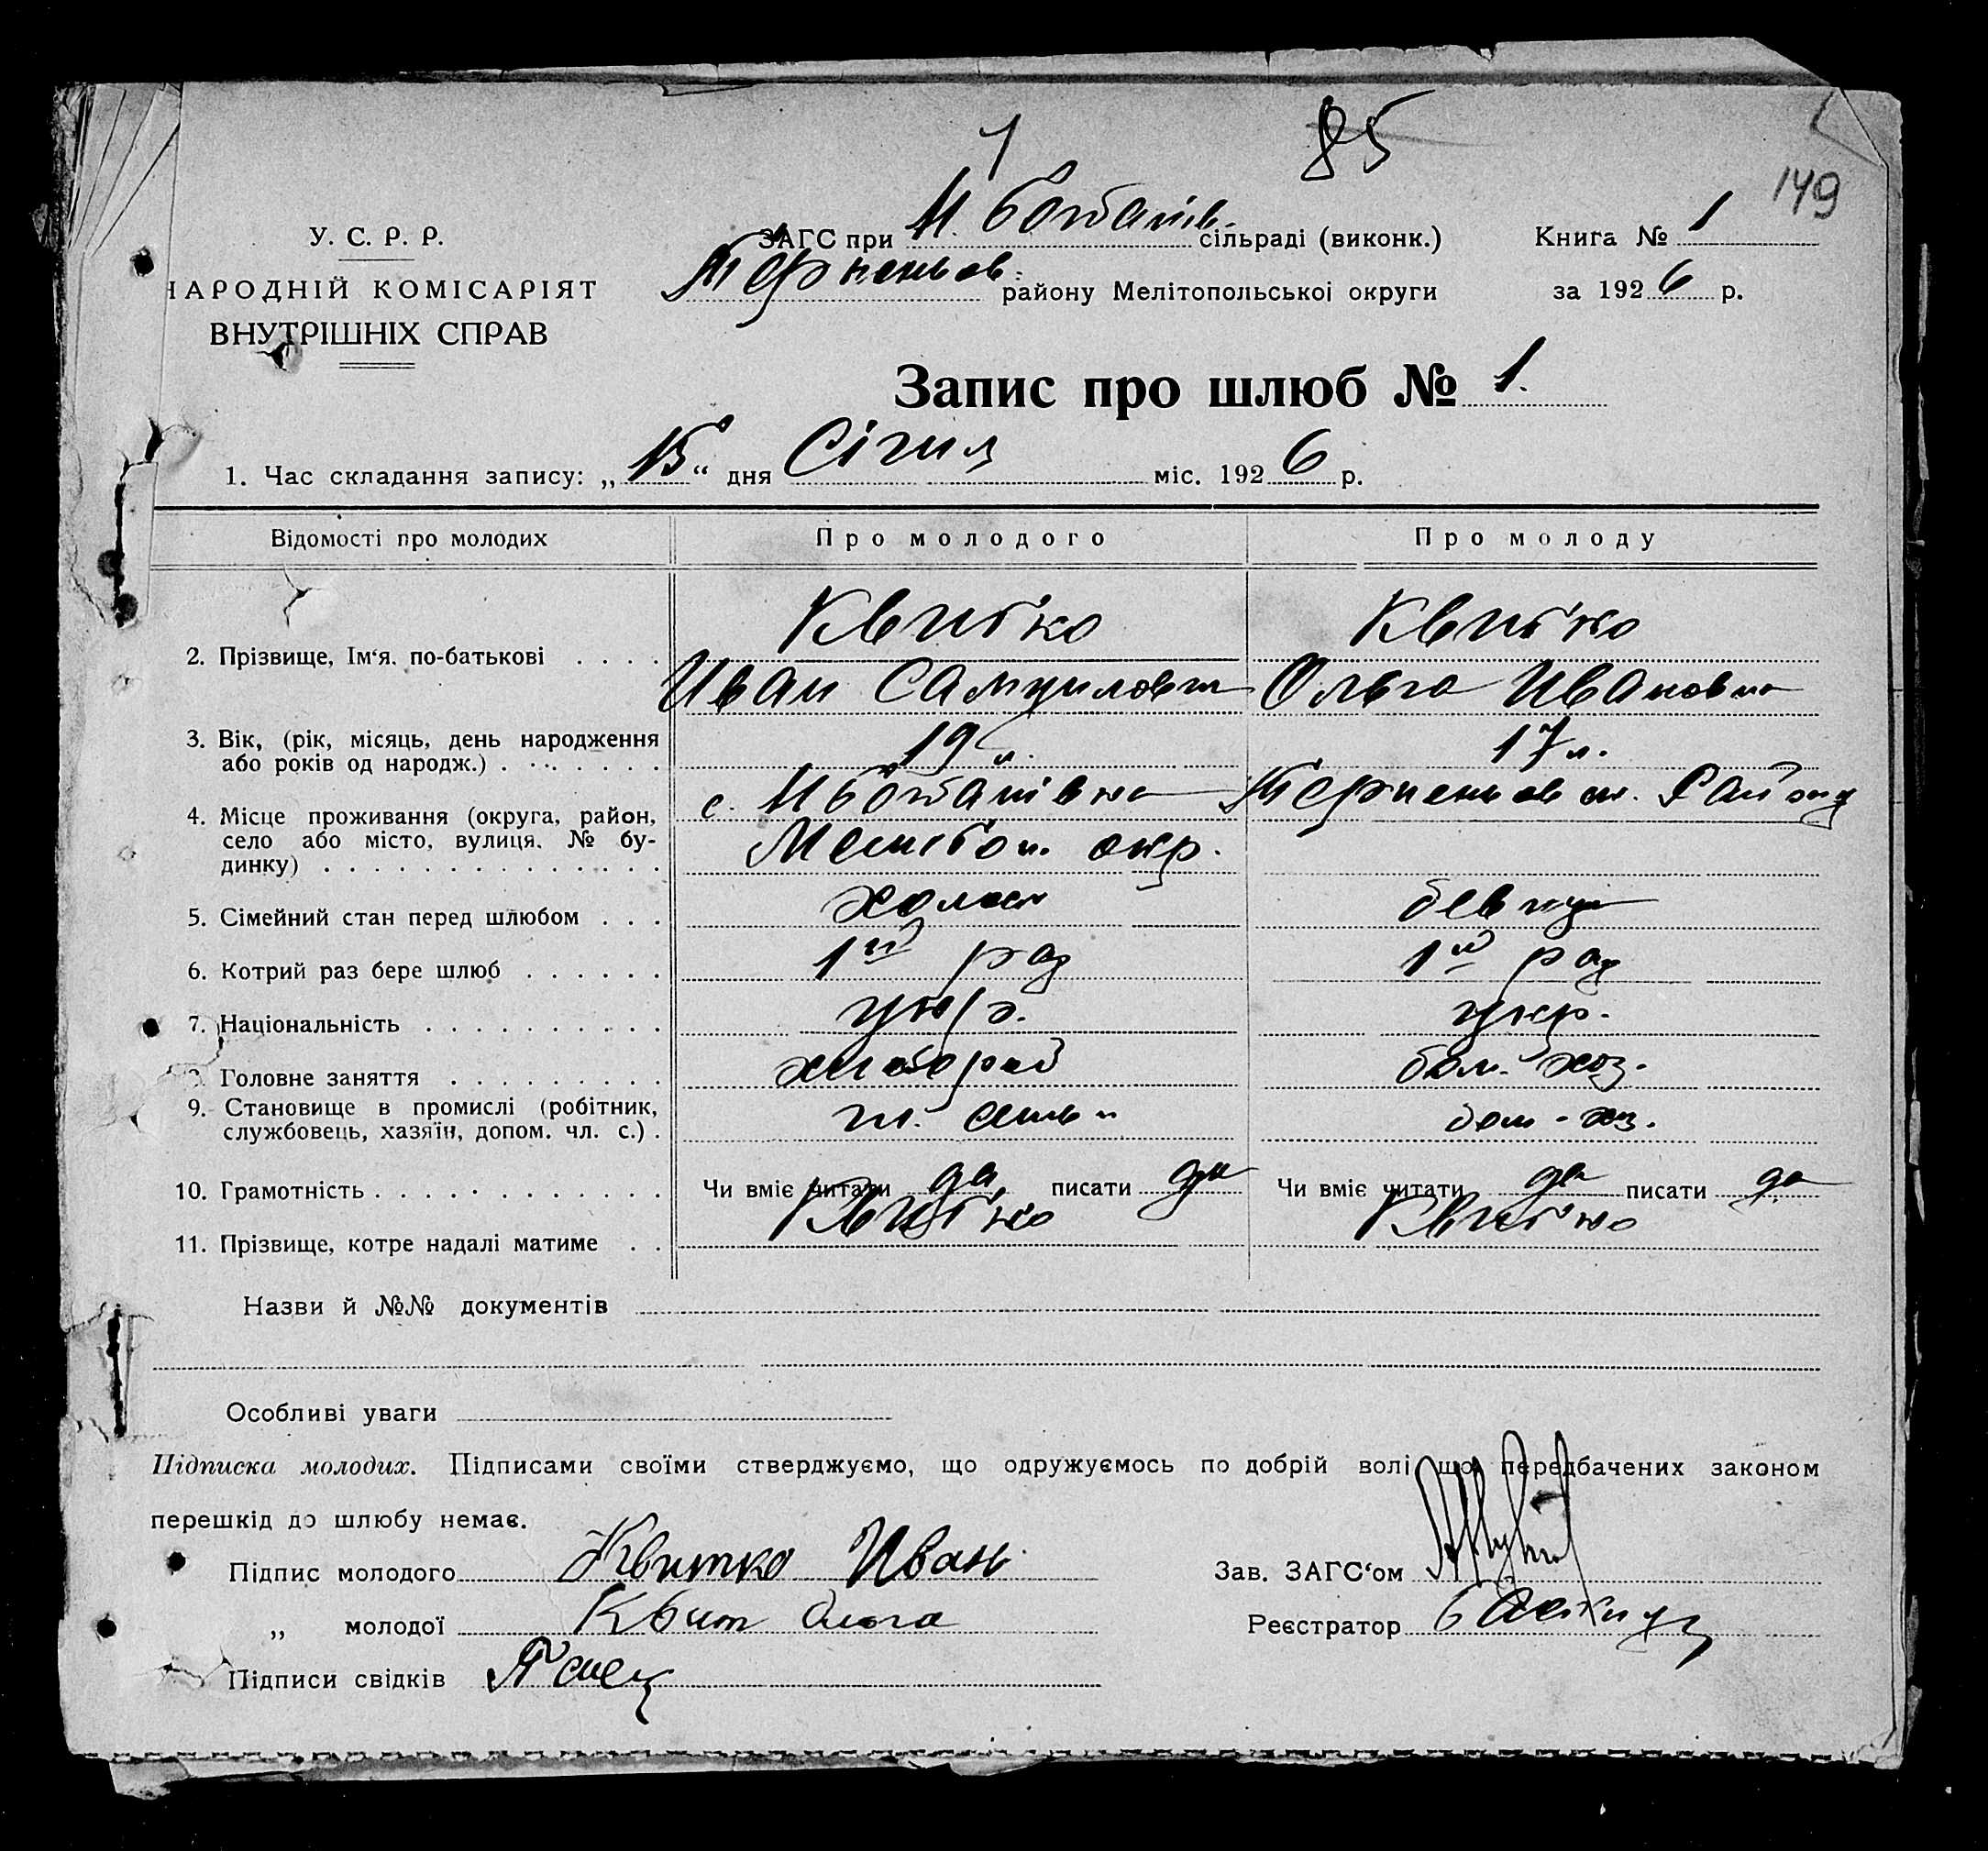 1 85
149
У. С. Р. Р.
НАРОДНІЙ КОМІСАРІЯТ
ВНУТРІШНІХ СПРАВ
ЗАГС при М. Богданів. сільраді (виконк.)
Терпеньев. району Мелітопольської округи
Книга № 1
за 1926 р.
Запис про шлюб № 1.
1. Час складання запису: „15“ дня Січня міс. 1926 р.
Відомості про молодих Про молодого Про молоду
2. Прізвище, Ім‘я, по-батькові . . . . Квитко Квитко
Иван Самуилович Ольга Ивановна
3. Вік, (рік, місяць, день народження
або років од народж.) . . . . . . . 19 л. 17 л.
4. Місце проживання (округа, район,
село або місто, вулиця, № бу-
динку) . . . . . . . . . . . . . .
с. М Богданівка Терпеньевск. Району
Мелітоп. окр.
5. Сімейний стан перед шлюбом . . . холост девица
6. Котрий раз бере шлюб . . . . . . 1й раз 1й раз
7. Національність . . . . . . . . . . укр. укр.
8. Головне заняття . . . . . . . . . хлібороб дом. хоз.
9. Становище в промислі (робітник,
службовець, хазяїн, допом. чл. с.) . чл. семьи дом-хоз.
10. Грамотність . . . . . . . . . . . . Чи вміє читати да, писати да Чи вміє читати да писати да
11. Прізвище, котре надалі матиме . . Квитко Квитко
Назви й №№ документів
Особливі уваги
Підписка молодих. Підписами своїми стверджуємо, що одружуємось по добрій волі що передбачених законом
перешкід до шлюбу немає.
Підпис молодого Квитко Иван
„ молодої Квит Ольга
Підписи свідків
Зав. ЗАГС‘ом
Реєстратор